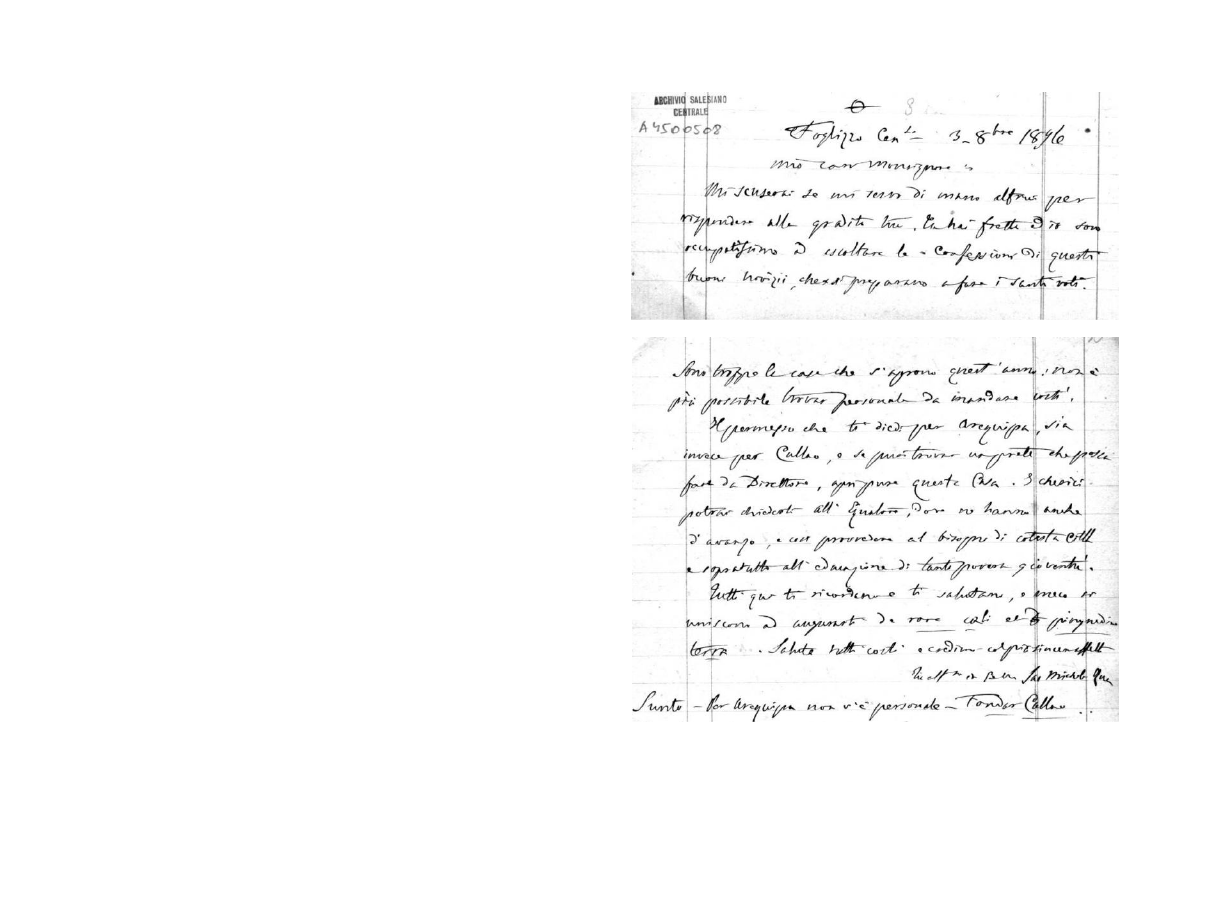 ARCHIVIO SALESIANO
CENTRALE
A4500508
Foglizzo Can.se 3_ 8bre 1896
Mio caro Monsignore
Mi scuserai se mi servo di mano altrui per
rispondere alle gradite tue. Tu hai fretta ed io sono
occupatissimo ad ascoltare le confessioni di questi
buoni novizii, che si preparano a fare i santi voti.
Sono troppe le case che s'aprono quest'anno: non è
più possibile trovar personale da mandare costì.
Il permesso che ti diedi per Arequipa, sia
invece per Callao, e se puoi trovar un prete che possa
fare da Direttore, apri pure questa Casa. 3 chierici
potrai chiederli all'Equatore, dove ne hanno anche
d'avanzo, e così provvedere al bisogno di cotesta
e sopratutto all'educazione di tanta povera gioventù.
Tutti qui ti ricordano e ti salutano, e meco si
uniscono ad augurarti de rore cœli et de pinguedine
terræ. Saluta tutti costì e credimi col più sincero affetto
Tuo aff.mo in Sac Michele Rua
Sunto - Per Arequipa non v'è personale - Fondar Callao ..